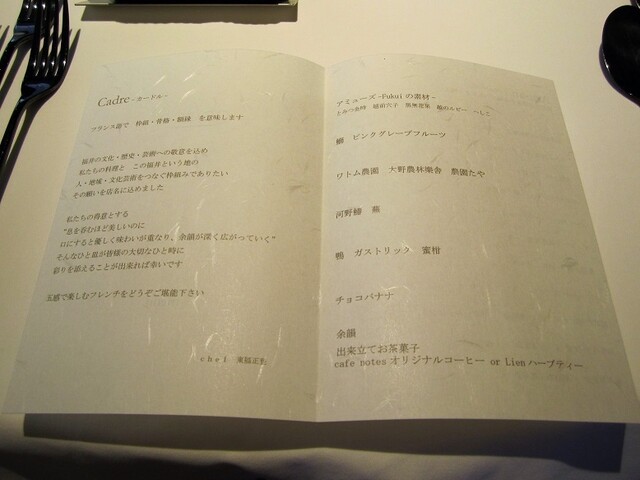 Cadre -カードル-
フランス語で 枠組・骨格・額縁 を意味します
福井の文化・歴史・芸術への敬意を込め
私たちの料理と この福井という地の
人・地域・文化芸術をつなぐ枠組みでありたい
その願いを店名に込めました
私たちの得意とする
"息を呑むほど美しいのに
口にすると優しく味わいが重なり、余韻が深く広がっていく"
そんなひと皿が皆様の大切なひと時に
彩りを添えることが出来れば幸いです
五感で楽しむフレンチをどうぞご堪能下さい
chef
アミューズ -Fukui の素材-
とみつ金時 越前穴子 越のルビー へしこ
鰤 ピンクグレープフルーツ
ワトム農園 大野農林樂舎 農園たや
河野鰆 蕪
鴨 ガストリック 蜜柑
チョコバナナ
余韻
出来立てお茶菓子
cafe notes オリジナルコーヒー or Lien ハーブティー